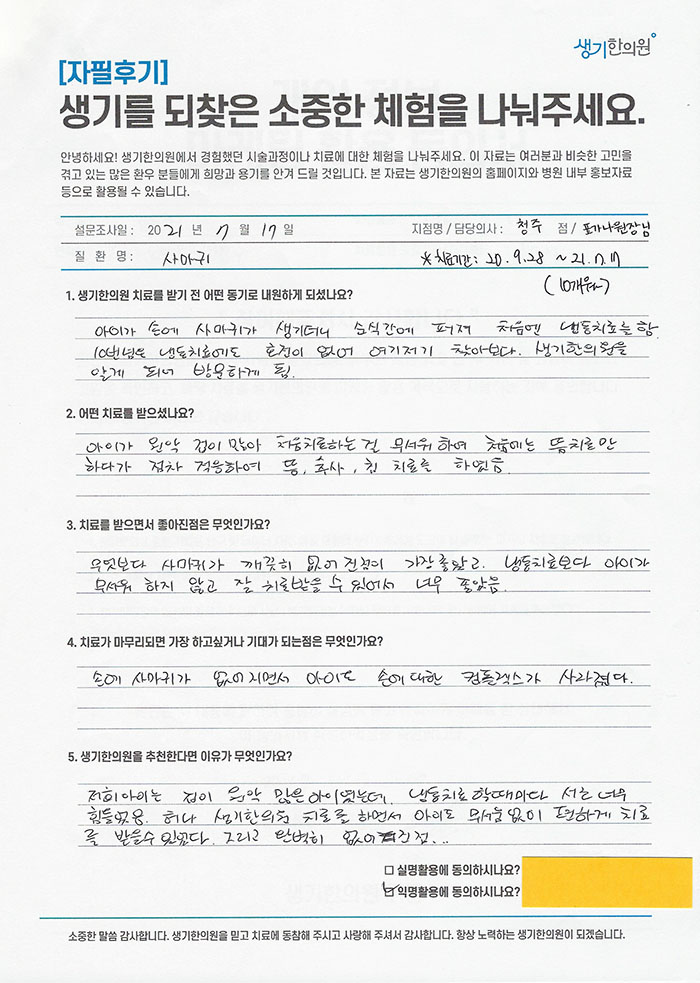 생기한의원
[자필후기]
생기를 되찾은 소중한 체험을 나눠주세요.
안녕하세요! 생기한의원에서 경험했던 시술과정이나 치료에 대한 체험을 나눠주세요. 이 자료는 여러분과 비슷한 고민을
겪고 있는 많은 환우 분들에게 희망과 용기를 안겨 드릴 것입니다. 본 자료는 생기한의원의 홈페이지와 병원 내부 홍보자료
등으로 활용될 수 있습니다.
설문조사일 : 2021 년 7 월 17 일 지점명 / 담당의사 : 청주 점 / 원장님
질 환 명 : 사마귀 * 치료기간 : 20. 9. 28 ~ 21. 7. 17
(10개월)
1. 생기한의원 치료를 받기 전 어떤 동기로 내원하게 되셨나요?
아이가 손에 사마귀가 생기더니 순식간에 퍼져 처음엔 냉동치료를 함.
10번넘는 냉동치료에도 호전이 없어 여기저기 찾아보다. 생기한의원을
알게 되어 방문하게 됨.
2. 어떤 치료를 받으셨나요?
아이가 원악 겁이 많아 처음치료하는걸 무서워 하여 처음에는 뜸치료만
하다가 점차 적응하여 뜸, 주사, 침 치료를 하였음.
3. 치료를 받으면서 좋아진점은 무엇인가요?
무엇보다 사마귀가 깨끗히 없어진점이 가장좋았고. 냉동치료보다 아이가
무서워 하지 않고 잘 치료받을 수 있어서 너무 좋았음.
4. 치료가 마무리되면 가장 하고싶거나 기대가 되는점은 무엇인가요?
손에 사마귀가 없어지면서 아이도 손에대한 컴플렉스가 사라졌다.
5. 생기한의원을 추천한다면 이유가 무엇인가요?
저희아이는 겁이 원악 많은아이였는데. 냉동치료 할때마다 서로 너무
힘들었음. 허나 생기한의원 치료를 하면서 아이도 무서움없이 편하게 치료
를 받을수 있었다. 그리고 완벽히 없어진점...
□ 실명활용에 동의하시나요?
□ 익명활용에 동의하시나요?
소중한 말씀 감사합니다. 생기한의원을 믿고 치료에 동참해 주시고 사랑해 주셔서 감사합니다. 항상 노력하는 생기한의원이 되겠습니다.